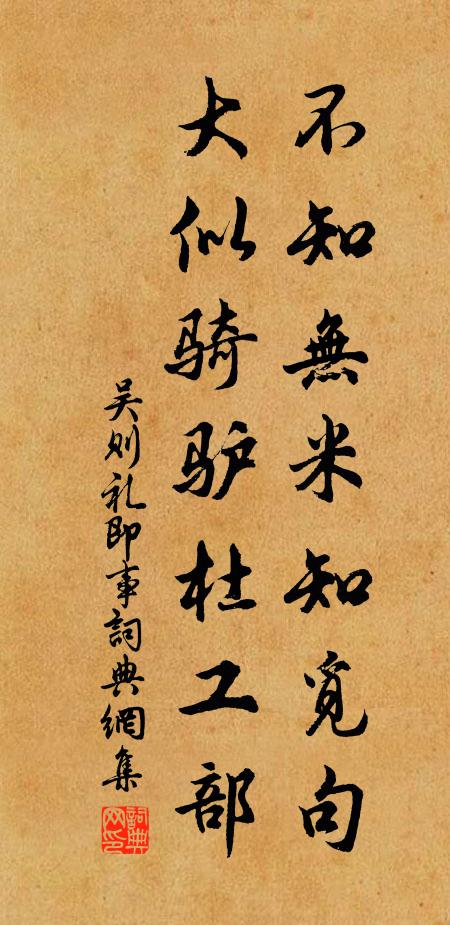 不知無米知覓句
大似骑驴杜工部
吴则礼即事詞典網集
詞典網印